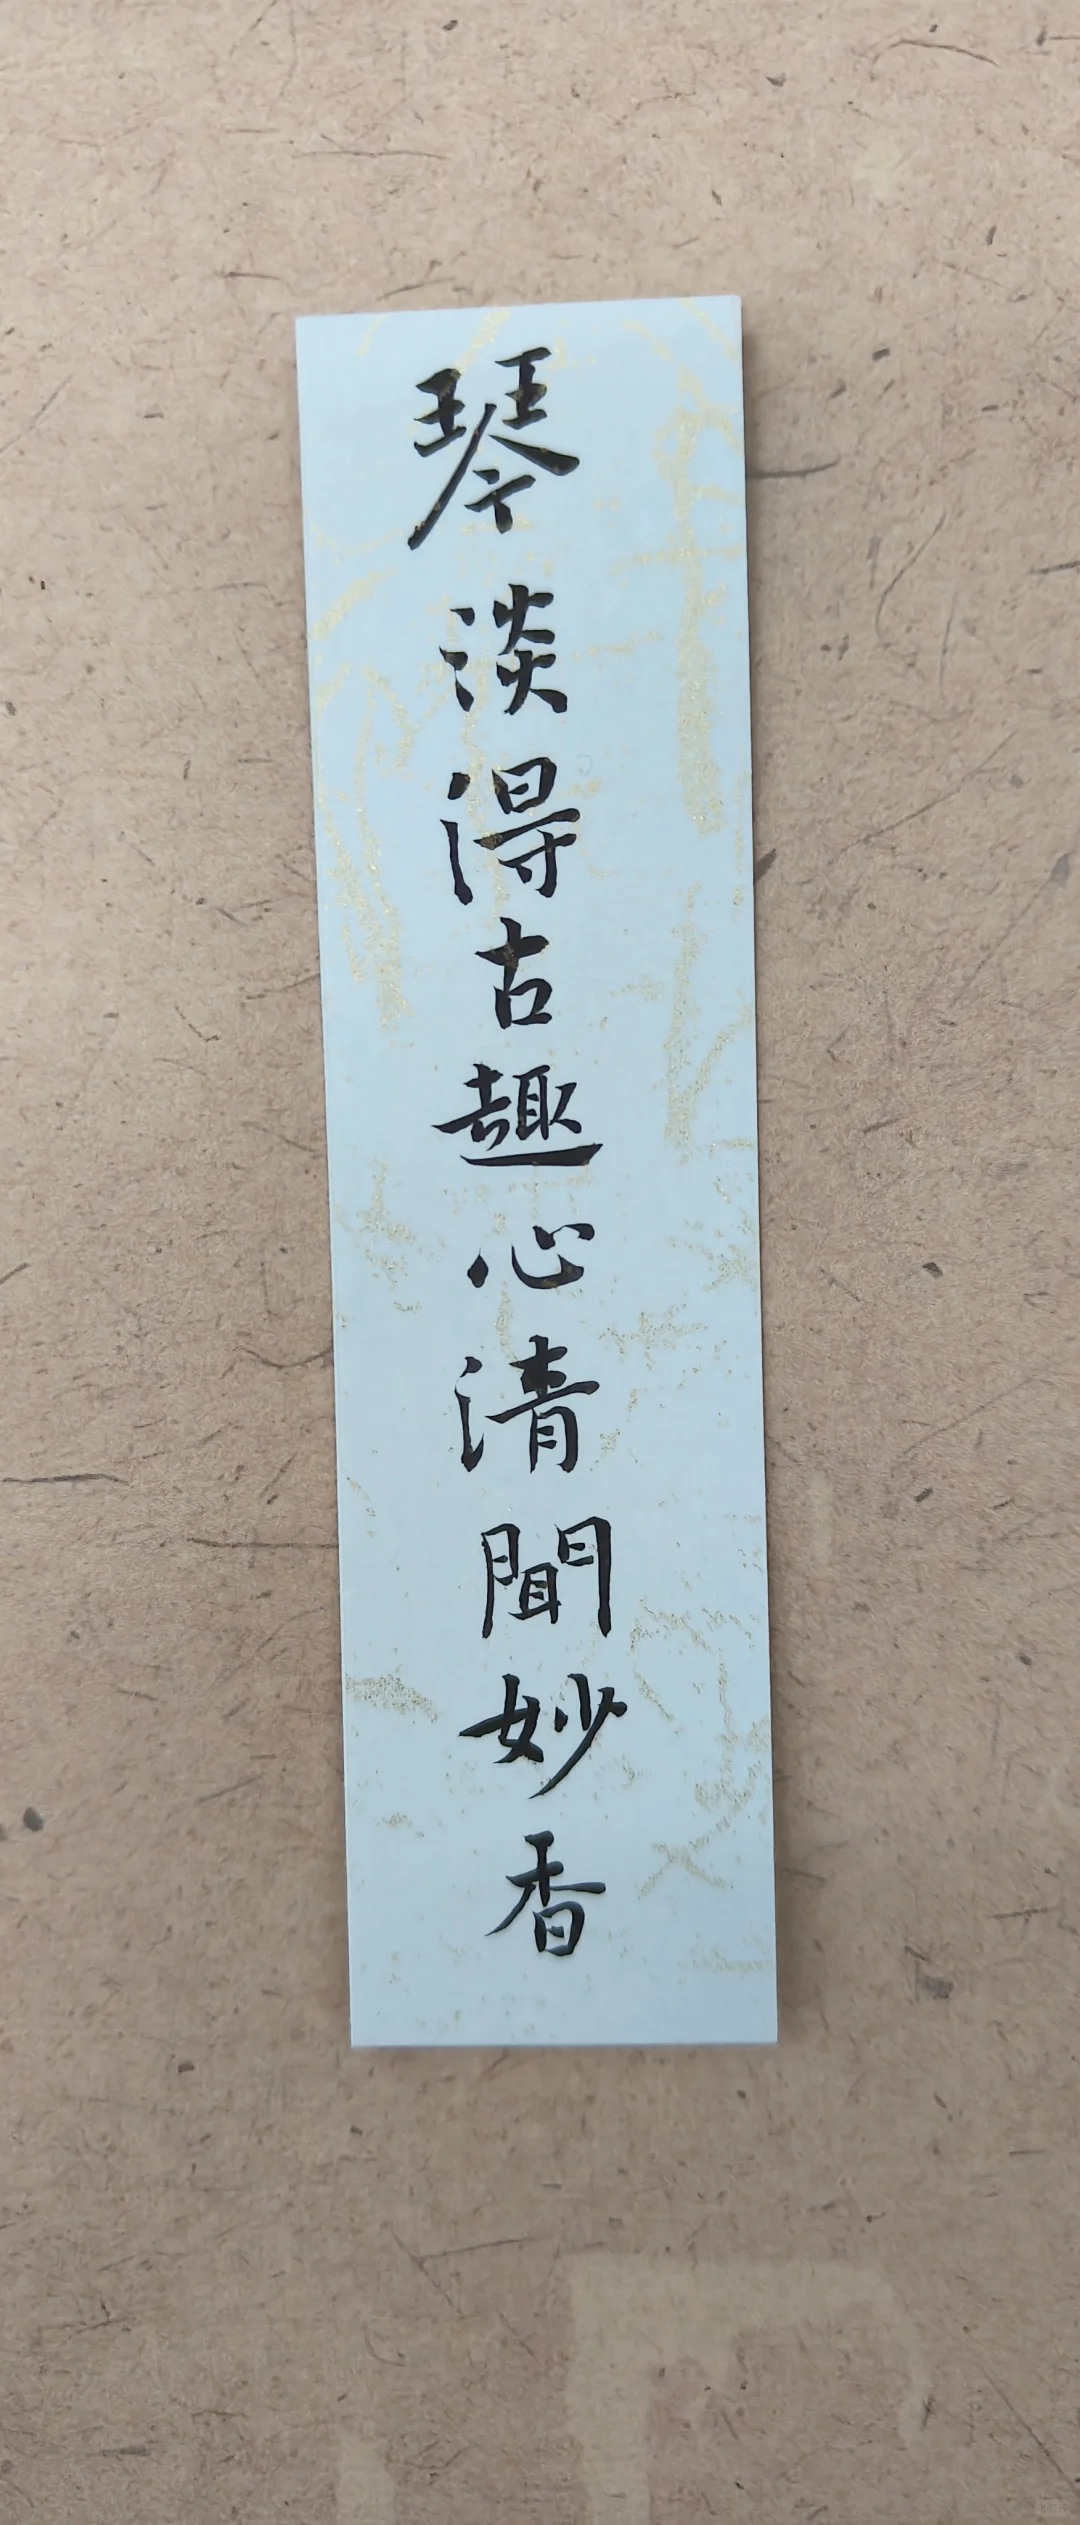 琴淡得古趣心清聞妙香